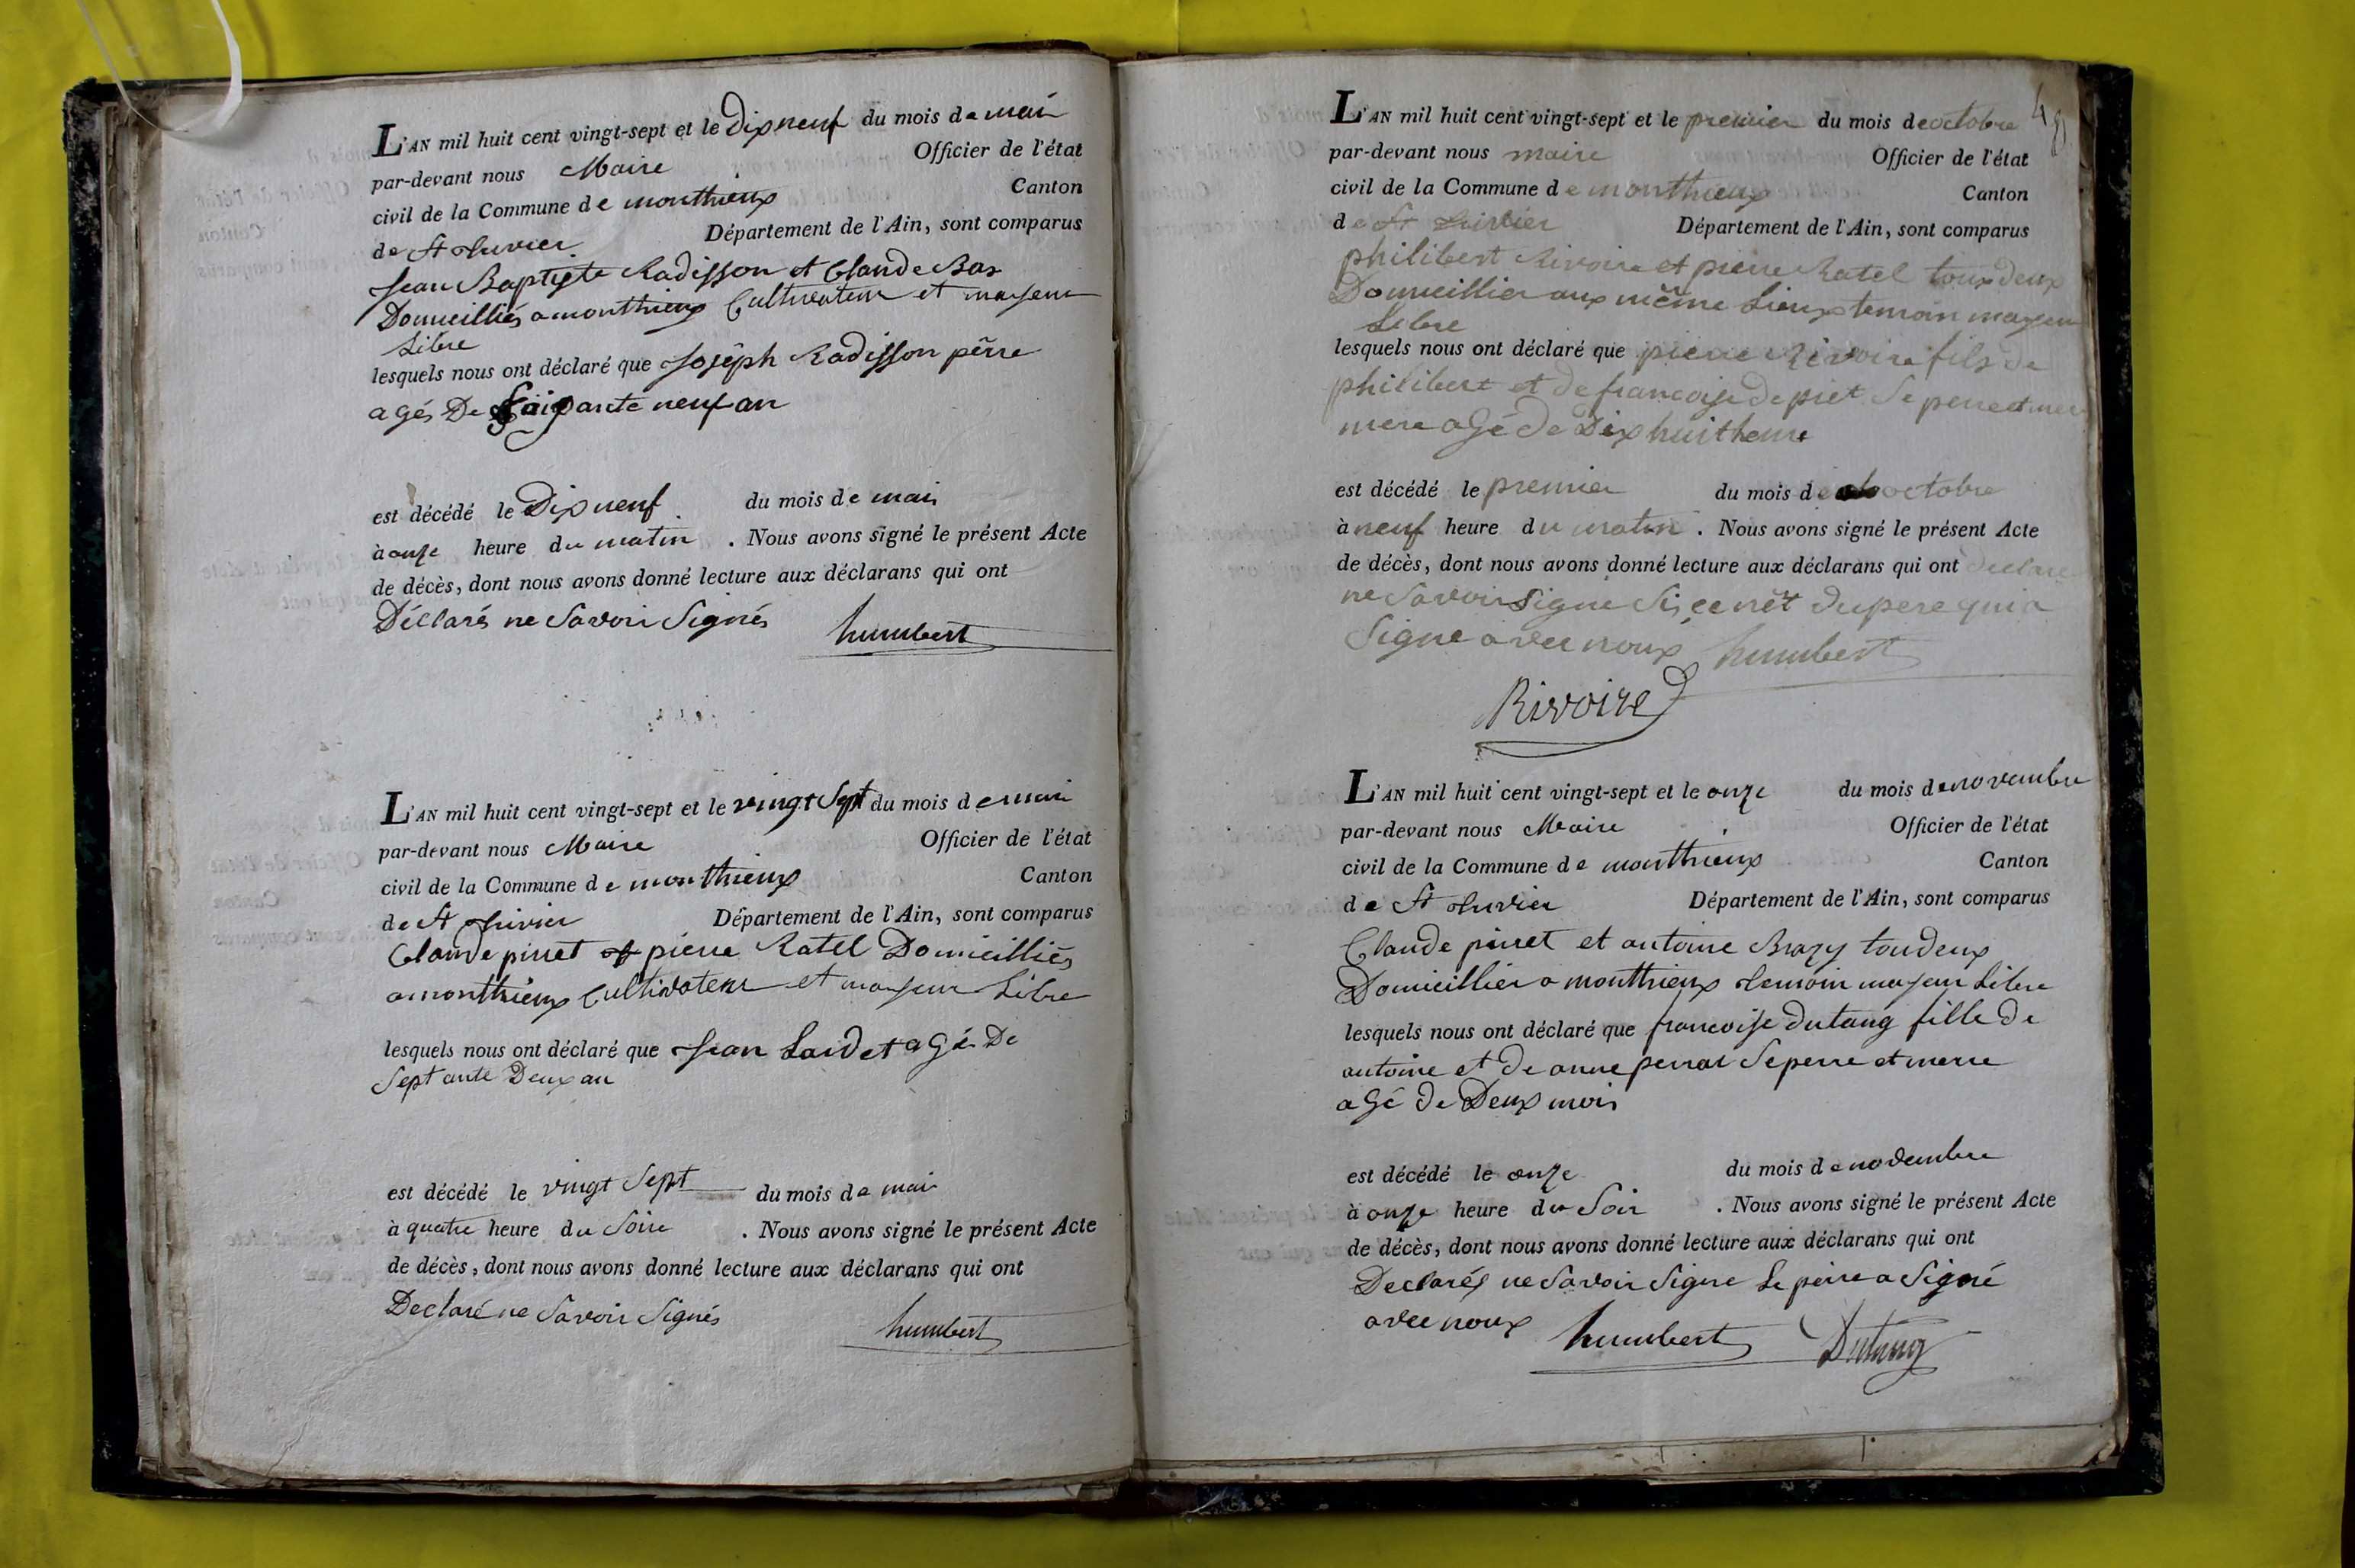 L'AN mil huit cent vingt-sept et le Dix neuf du mois de mai
par-devant nous Maire Officier de l'état
civil de la Commune de monthieux Canton
de St trivier Département de l'Ain, sont comparus
Jean Baptiste Radisson et Claude Bas
Domicilliés a monthieux Cultivateur et majeur
Libre
lesquels nous ont déclaré que Joseph Radisson pêrre
agés De Soixante neuf an
est décédé le Dix neuf du mois de mai
à onze heure du matin . Nous avons signé le présent Acte
de décès, dont nous avons donné lecture aux déclarans qui ont
Déclarés ne Savoir Signés humbert
L'AN mil huit cent vingt-sept et le vingt Sept du mois de mai
par-devant nous Maire Officier de l'état
civil de la Commune de monthieux Canton
de St trivier Département de l'Ain, sont comparus
Claude pinet et pierre Ratel Domicilliés
a monthieux Cultivateur et majeur Libre
lesquels nous ont déclaré que Jean Lardet agé De
Septante Deux an
est décédé le vingt Sept du mois de mai
à quatre heure du Soire . Nous avons signé le présent Acte
de décès, dont nous avons donné lecture aux déclarans qui ont
Declaré ne Savoir Signés humbert
L'AN mil huit cent vingt-sept et le premier du mois de octobre
par-devant nous maire Officier de l'état
civil de la Commune de monthieux Canton
de St trivier Département de l'Ain, sont comparus
philibert Rivoire et pierre Ratel tous deux
Domicillier aux même Lieux temoin majeur
Libre
lesquels nous ont déclaré que pierre Rivoire fils de
philibert et de francoise Se pere et mer
mere agé de Dix huit heure
est décédé le premier du mois de octobre
à neuf heure du matin . Nous avons signé le présent Acte
de décès, dont nous avons donné lecture aux déclarans qui ont declare
ne Savoir Signe Si ce nêt du pere qui a
Signe avec noux humbert
Rivoire
L'AN mil huit cent vingt-sept et le onze du mois de novembre
par-devant nous Maire Officier de l'état
civil de la Commune de monthieux Canton
de St trivier Département de l'Ain, sont comparus
Claude pinet et antoine Brazy toudeux
Domicillier a monthieux temoin majeur Libre
lesquels nous ont déclaré que francoise dutang fille de
antoine et de anne perrat Se perre et merre
agé de Deux mois
est décédé le onze du mois de novembre
à onze heure du Soir . Nous avons signé le présent Acte
de décès, dont nous avons donné lecture aux déclarans qui ont
Declarés ne Savoir Signe Le peire a Signé
avec noux humbert Dutang